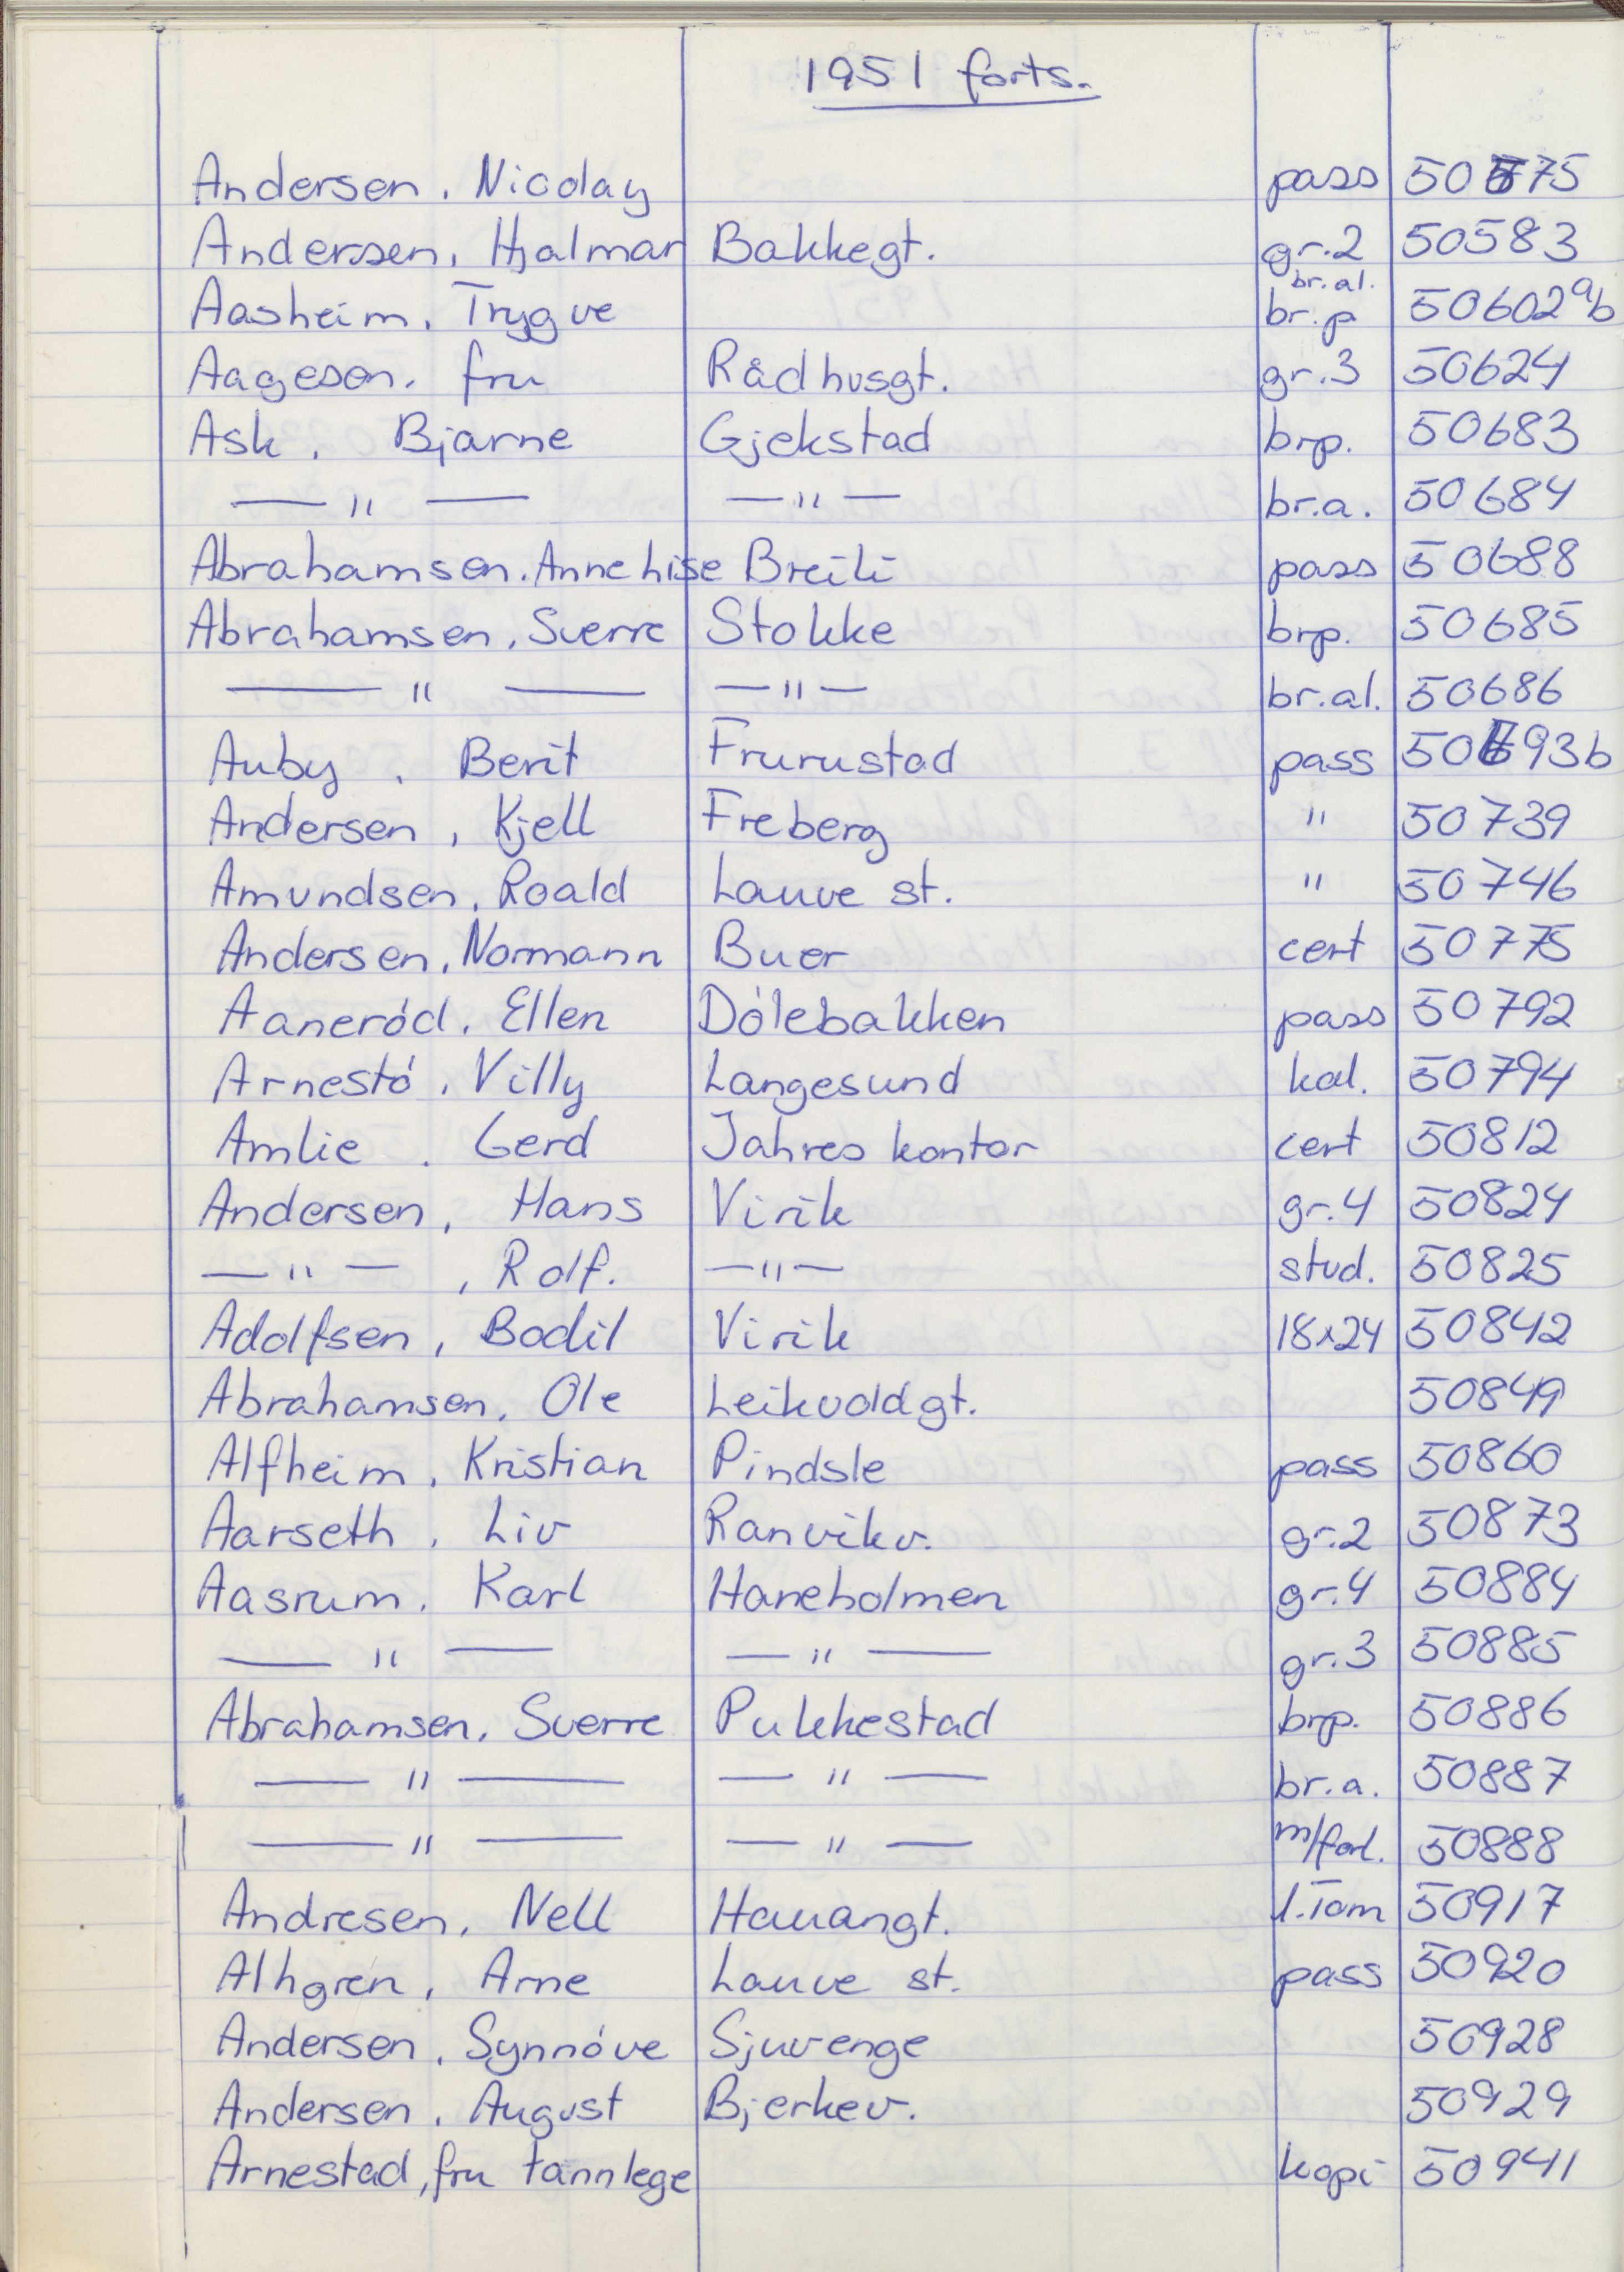 1951 forts.
Andersen, Nicolay pass 50575
Anderssen, Hjalmar Bakkegt. gr.2 50583
Aasheim, Trygve br.al. br.p 50602ab
Aagesen, fru Rådhusgt. gr.3 50624
Ask, Bjarne Gjekstad brp. 50683
— " — — " — br.a. 50684
Abrahamsen, Anne Lise Breili pass 50688
Abrahamsen, Sverre Stokke brp. 50685
— " — — " — br.al. 50686
Auby, Berit Frurustad pass 93b
Andersen, Kjell Freberg " 50739
Amundsen, Roald Lauve st. " 50746
Andersen, Normann Buer cert 50775
Aaneród, Ellen Dólebakken pass 50792
Arnestó, Villy Langesund kal. 50794
Amlie, Gerd Jahres kontor cert 50812
Andersen, Hans Virik gr.4 50824
— " —, Rolf. — " — stud. 50825
Adolfsen, Bodil Virik 18x24 50842
Abrahamsen, Ole Leikvoldgt. 50849
Alfheim, Kristian Pindsle pass 50860
Aarseth, Liv Ranvikv. gr.2 50873
Aasrum, Karl Haneholmen gr.4 50884
— " — — " — gr.3 50885
Abrahamsen, Sverre Pukkestad brp. 50886
— " — — " — br.a. 50887
— " — — " — m/forl. 50888
Andresen, Nell Hauangt. 50917
Alhgren, Arne Lauve st. pass 50920
Andersen, Synnóve Sjuvenge 50928
Andersen, August Bjerkev. 50929
Arnestad, fru tannlege kopi 50941